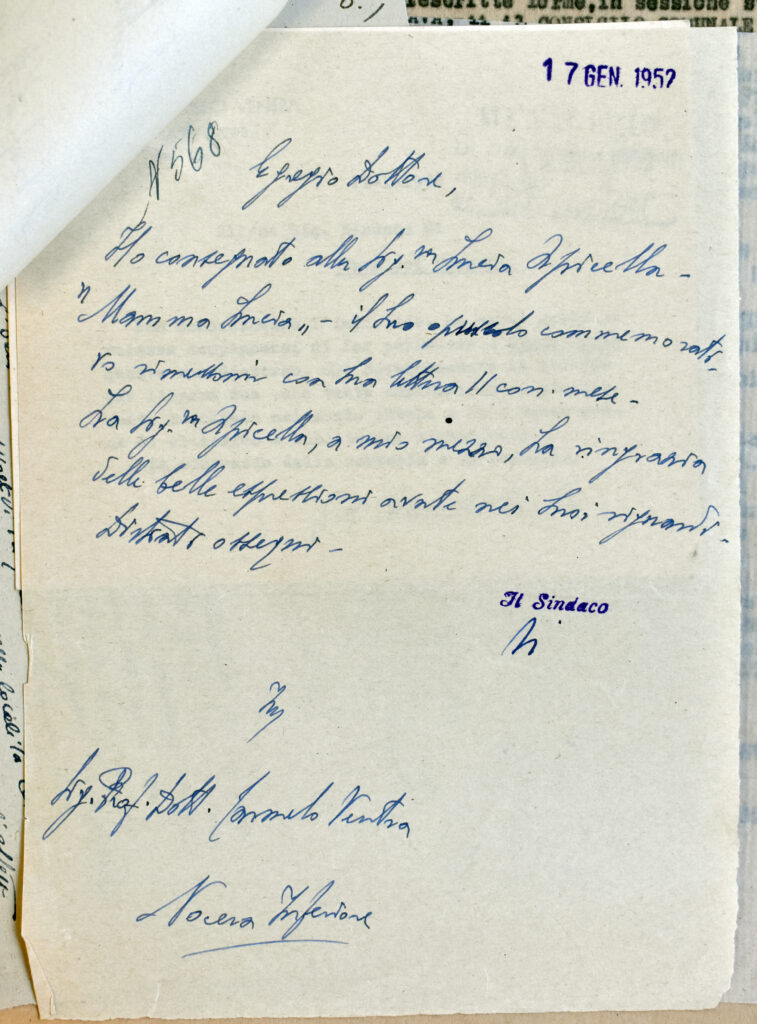 rescritte forme, in sessione s
CONSIGLIO COMUNALE
17 GEN. 1952
N 568
Egregio Dottore,
Ho consegnato alla Sig.ra Lucia Apicella -
"Mamma Lucia„ - il Suo opuscolo commemorati-
vo rimessomi con Sua lettera 11 corr. mese -
La Sig.ra Apicella, a mio mezzo, La ringrazia
delle belle espressioni avute nei Suoi riguardi -
Distinti ossequi -
Il Sindaco
Sig. Prof. Dott. Carmelo Ventra
Nocera Inferiore